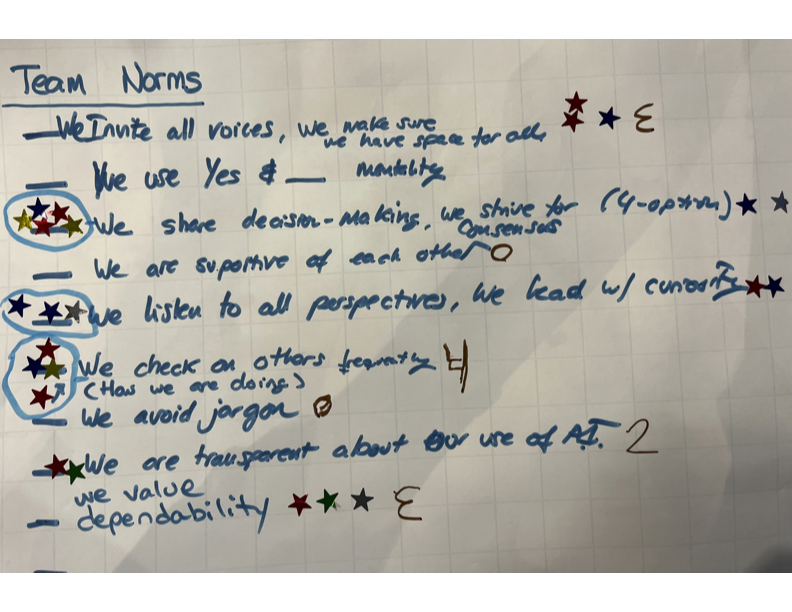 Team Norms
We Invite all voices, we make sure
we have space for all, 3
We use Yes & __ mentality
We share decision-making, we strive for (4-option)
consensus
We are suportive of each other 0
We listen to all perspectives, we lead w/ curiosity
We check on others frequently 4
(How we are doing)
We avoid jargon 0
We are transparent about our use of A.I. 2
we value
dependability 3